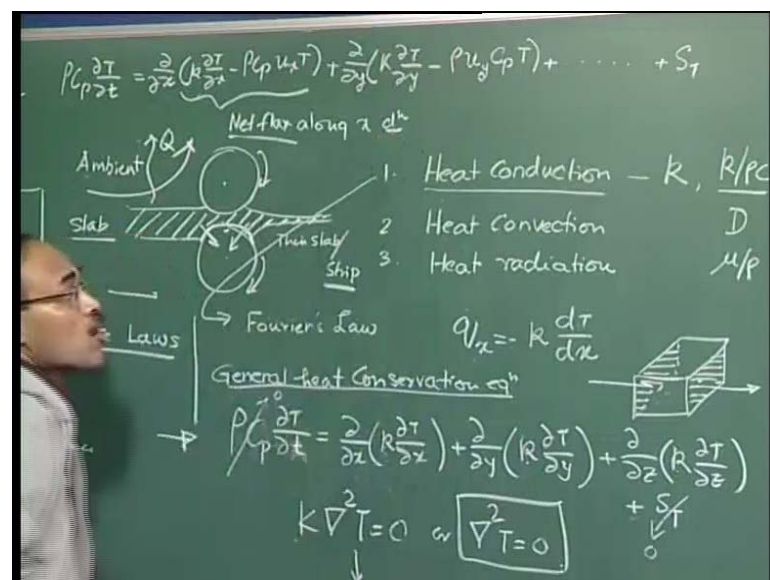 ρCp ∂T/∂t = ∂/∂x (k ∂T/∂x - ρCp uxT) + ∂/∂y (K ∂T/∂y - ρuy Cp T) + ...... + ST
Net flux along x dn
Q
Ambient
Slab
Thin Slab/
Ship
1. Heat Conduction - k, k/ρC
2 Heat Convection D
3. Heat radiation μ/ρ
Fourier's Law
qx = - k dT/dx
Laws
General heat Conservation eqn
ρCp ∂T/∂t = ∂/∂x (k ∂T/∂x) + ∂/∂y (k ∂T/∂y) + ∂/∂z (k ∂T/∂z)
0
+ ST
0
K∇²T=0 or ∇²T=0